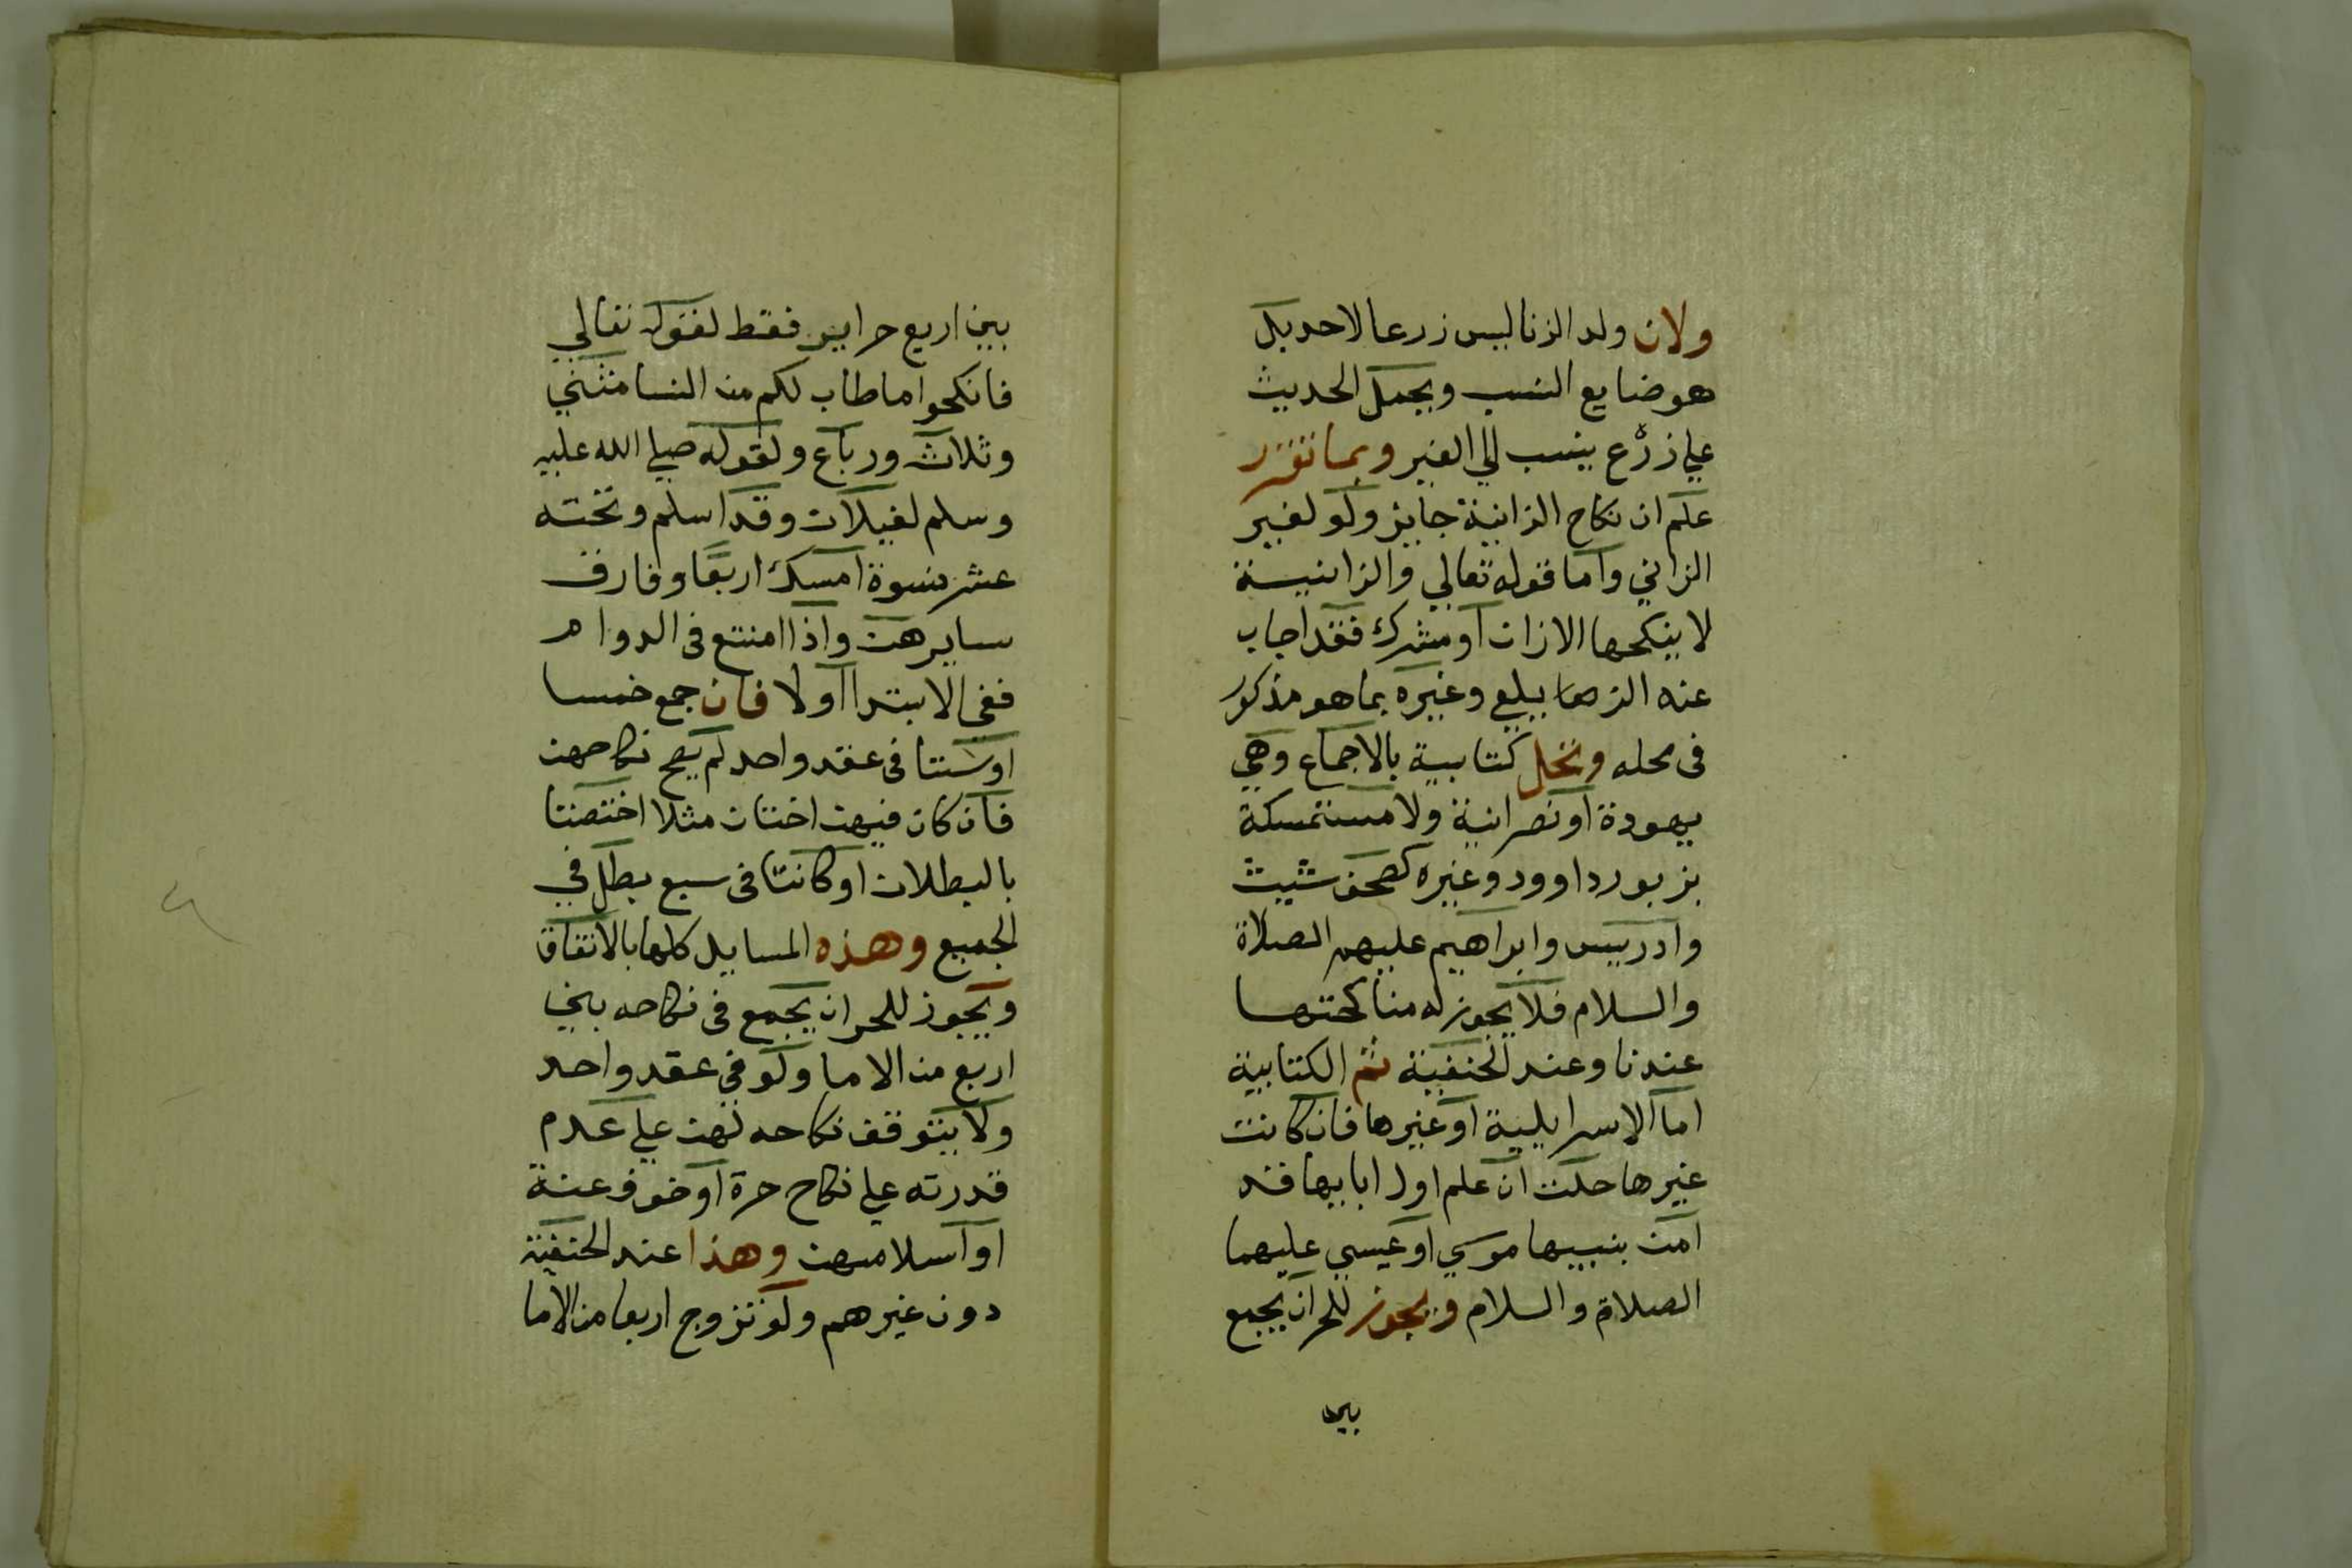 ولان ولد الزنا ليس زرعا لاحد بل
هو ضايع النسب ويحمل الحديث
علي زرع ينسب الي الغير وبما تقرر
علم ان نكاح الزانية جايز ولو لغير
الزاني واما قوله تعالي والزانيـة
لا ينكحها الا زان او مشرك فقد اجاب
عنه الزيلعي وغيره بما هو مذكور
في محله وتحل كتابية بالاجماع وهي
يهودة او نصرانية ولا مستمسكة
بزبور داوود وغيره كصحف شيث
وادريس وابراهيم عليهم الصلاة
والسلام فلا يجوز له مناكحتها
عندنا وعند الحنفية ثم الكتابية
اما الاسرايلية او غيرها فان كانت
غيرها حلت ان علم اول ابايها قد
امن بنبيها موسي او عيسي عليهما
الصلاة والسلام ويجوز للحر ان يجمع
بين
بين اربع حراير فقط لقوله تعالي
فانكحوا ما طاب لكم من النسا مثني
وثلاث ورباع ولقوله صلي الله عليه
وسلم لغيلان وقد اسلم وتحته
عشر نسوة امسك اربعا وفارق
سايرهن واذا امنتع في الدوام
ففي الابتدا اولا فان جمع خمسا
او ستا في عقد واحد لم يصح نكاحهن
فان كان فيهن اختان مثلا اختصتا
بالبطلان او كانتا في سبع بطل في
الجميع وهذه المسايل كلها بالاتفاق
ويجوز للحر ان يجمع في نكاحه بين
اربع من الاما ولو في عقد واحد
ولا يتوقف نكاحه لهن علي عدم
قدرته علي نكاح حرة او خوف عنة
او اسلامهن وهذا عند الحنفية
دون غيرهم ولو تزوج اربعا من الاما